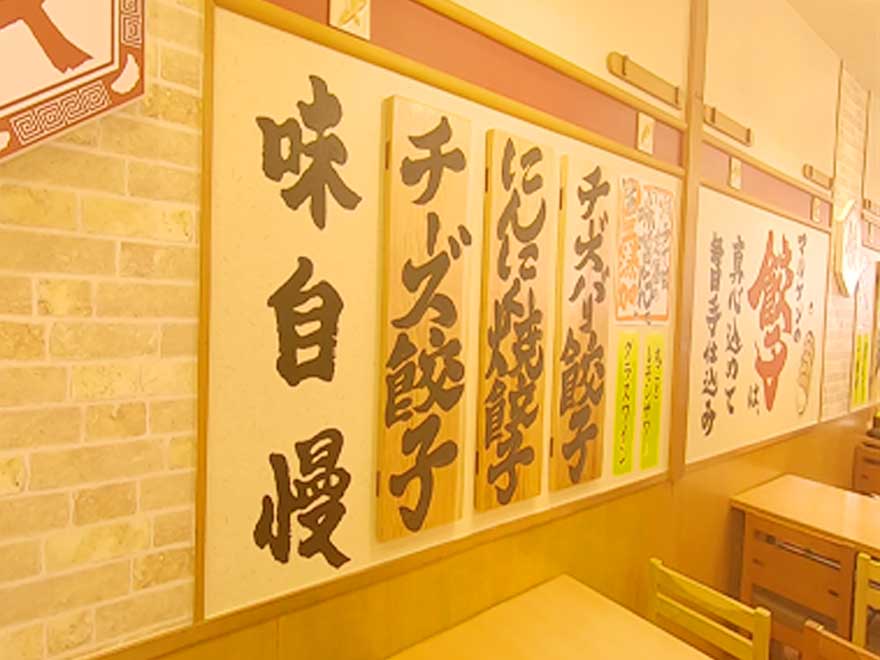 味自慢
チーズ餃子
にんにく焼餃子
チーズパリ餃子
グラスワイン
餃子は、
真心込めて
毎日手仕込み